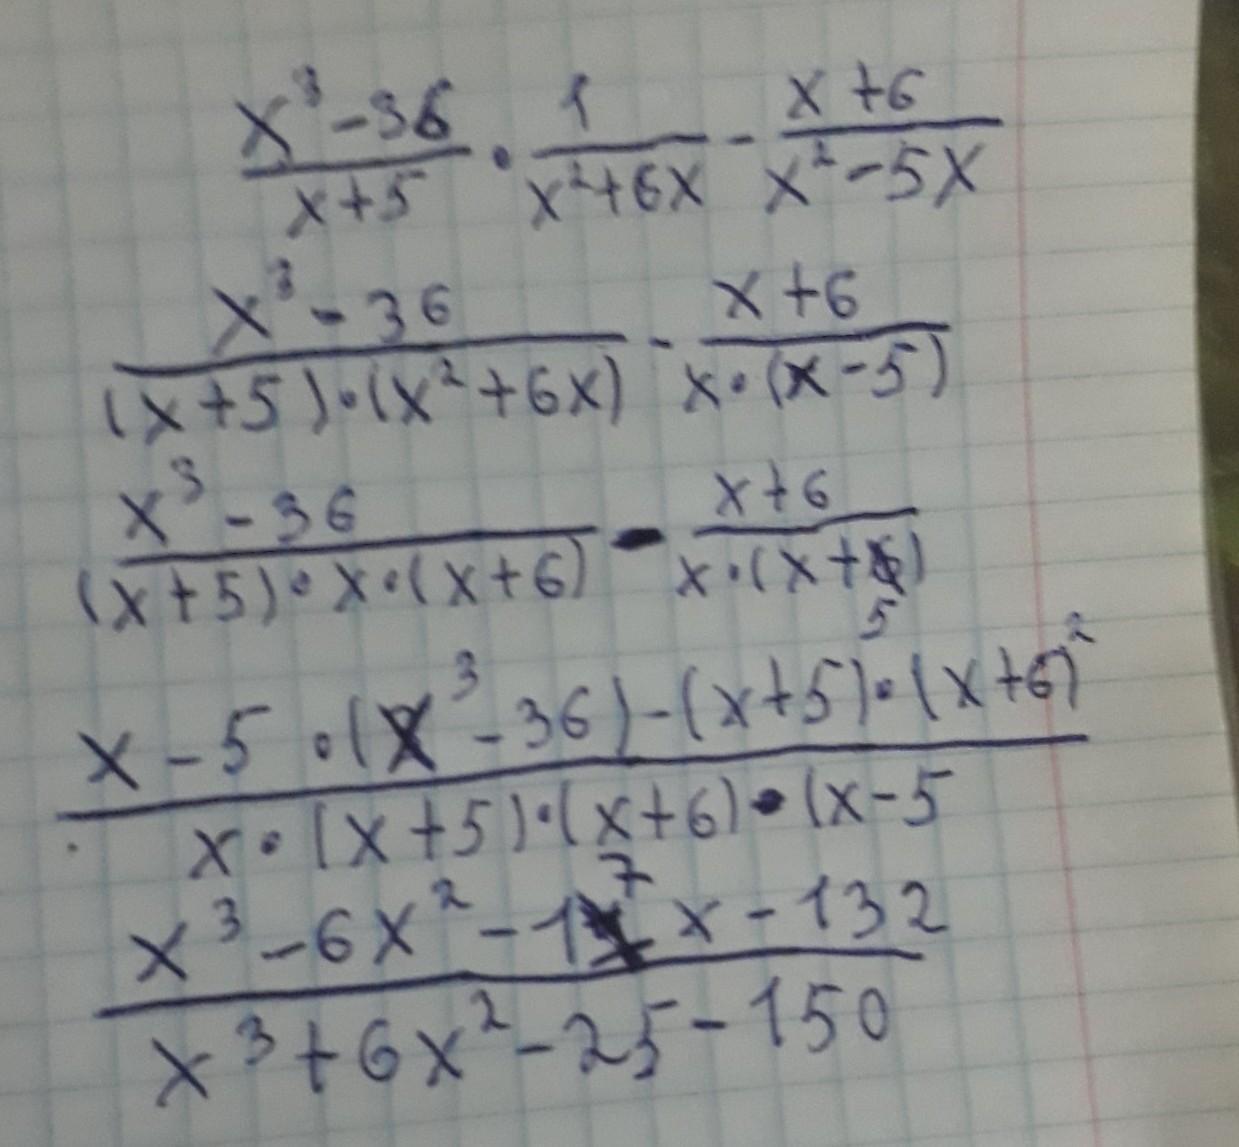 x³-36/x+5 · 1/x²+6x - x+6/x²-5x
x³-36/(x+5)·(x²+6x) - x+6/x·(x-5)
x³-36/(x+5)·x·(x+6) - x+6/x·(x+5)
x-5·(x³-36)-(x+5)·(x+6)²/x·(x+5)·(x+6)·(x-5
x³-6x²-17x-132/x³+6x²-25-150